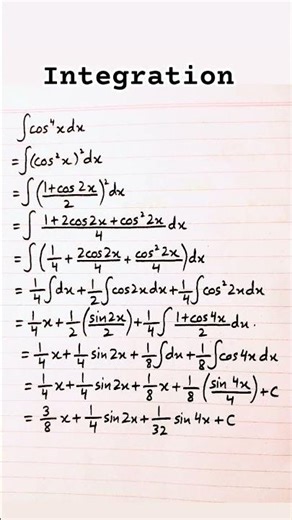 Integration
∫cos⁴xdx
=∫(cos²x)²dx
=∫((1+cos2x)/2)²dx
=∫ (1+2cos2x+cos²2x)/4 dx
=∫(1/4 + 2cos2x/4 + cos²2x/4)dx
=1/4∫dx+1/2∫cos2xdx+1/4∫cos²2xdx
=1/4x+1/2(sin2x/2)+1/4∫(1+cos4x)/2 dx.
=1/4x+1/4sin2x+1/8∫dx+1/8∫cos4xdx
=1/4x+1/4sin2x+1/8x+1/8(sin4x/4)+C
=3/8x+1/4sin2x+1/32sin4x+C